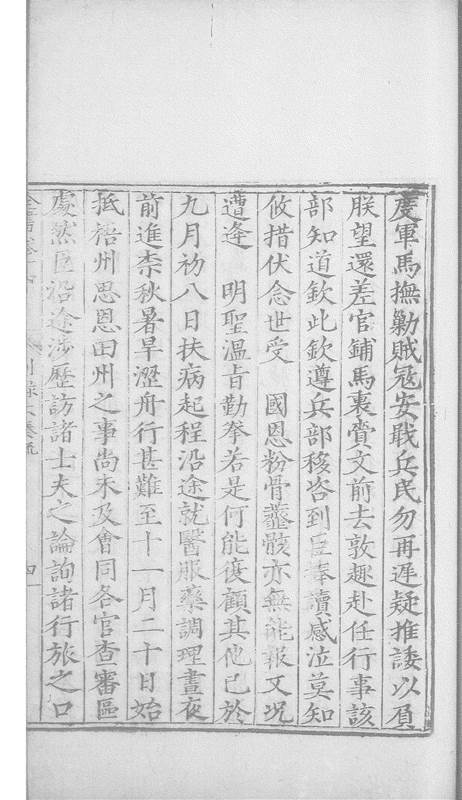 度軍馬撫勦賊冦安戢兵民勿再遲疑推諉以負
朕望還差官鋪馬裏賫文前去敦趣赴任行事該
部知道欽此欽遵兵部移咨到臣捧讀感泣莫知
攸措伏念世受　國恩粉骨虀骸亦無能報又况
遭逢　明聖溫旨勤拳若是何能復顧其他已於
九月初八日扶病起程沿途就醫服藥調理晝夜
前進柰秋暑旱澀舟行甚難至十一月二十日始
抵梧州思恩田州之事尚未及會同各官查審區
處然臣沿途涉歷訪諸士夫之論詢諸行旅之口